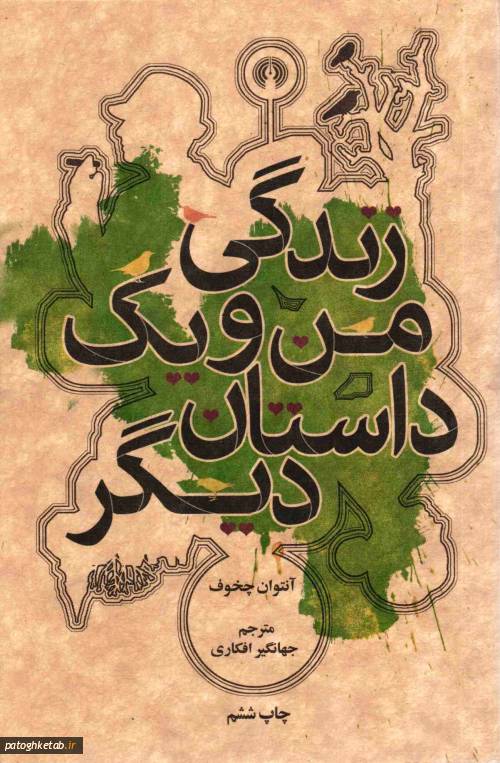 زندگی
من و یک
داستان
دیگر
آنتوان چخوف
مترجم
جهانگیر افکاری
چاپ ششم
patoghketab.ir